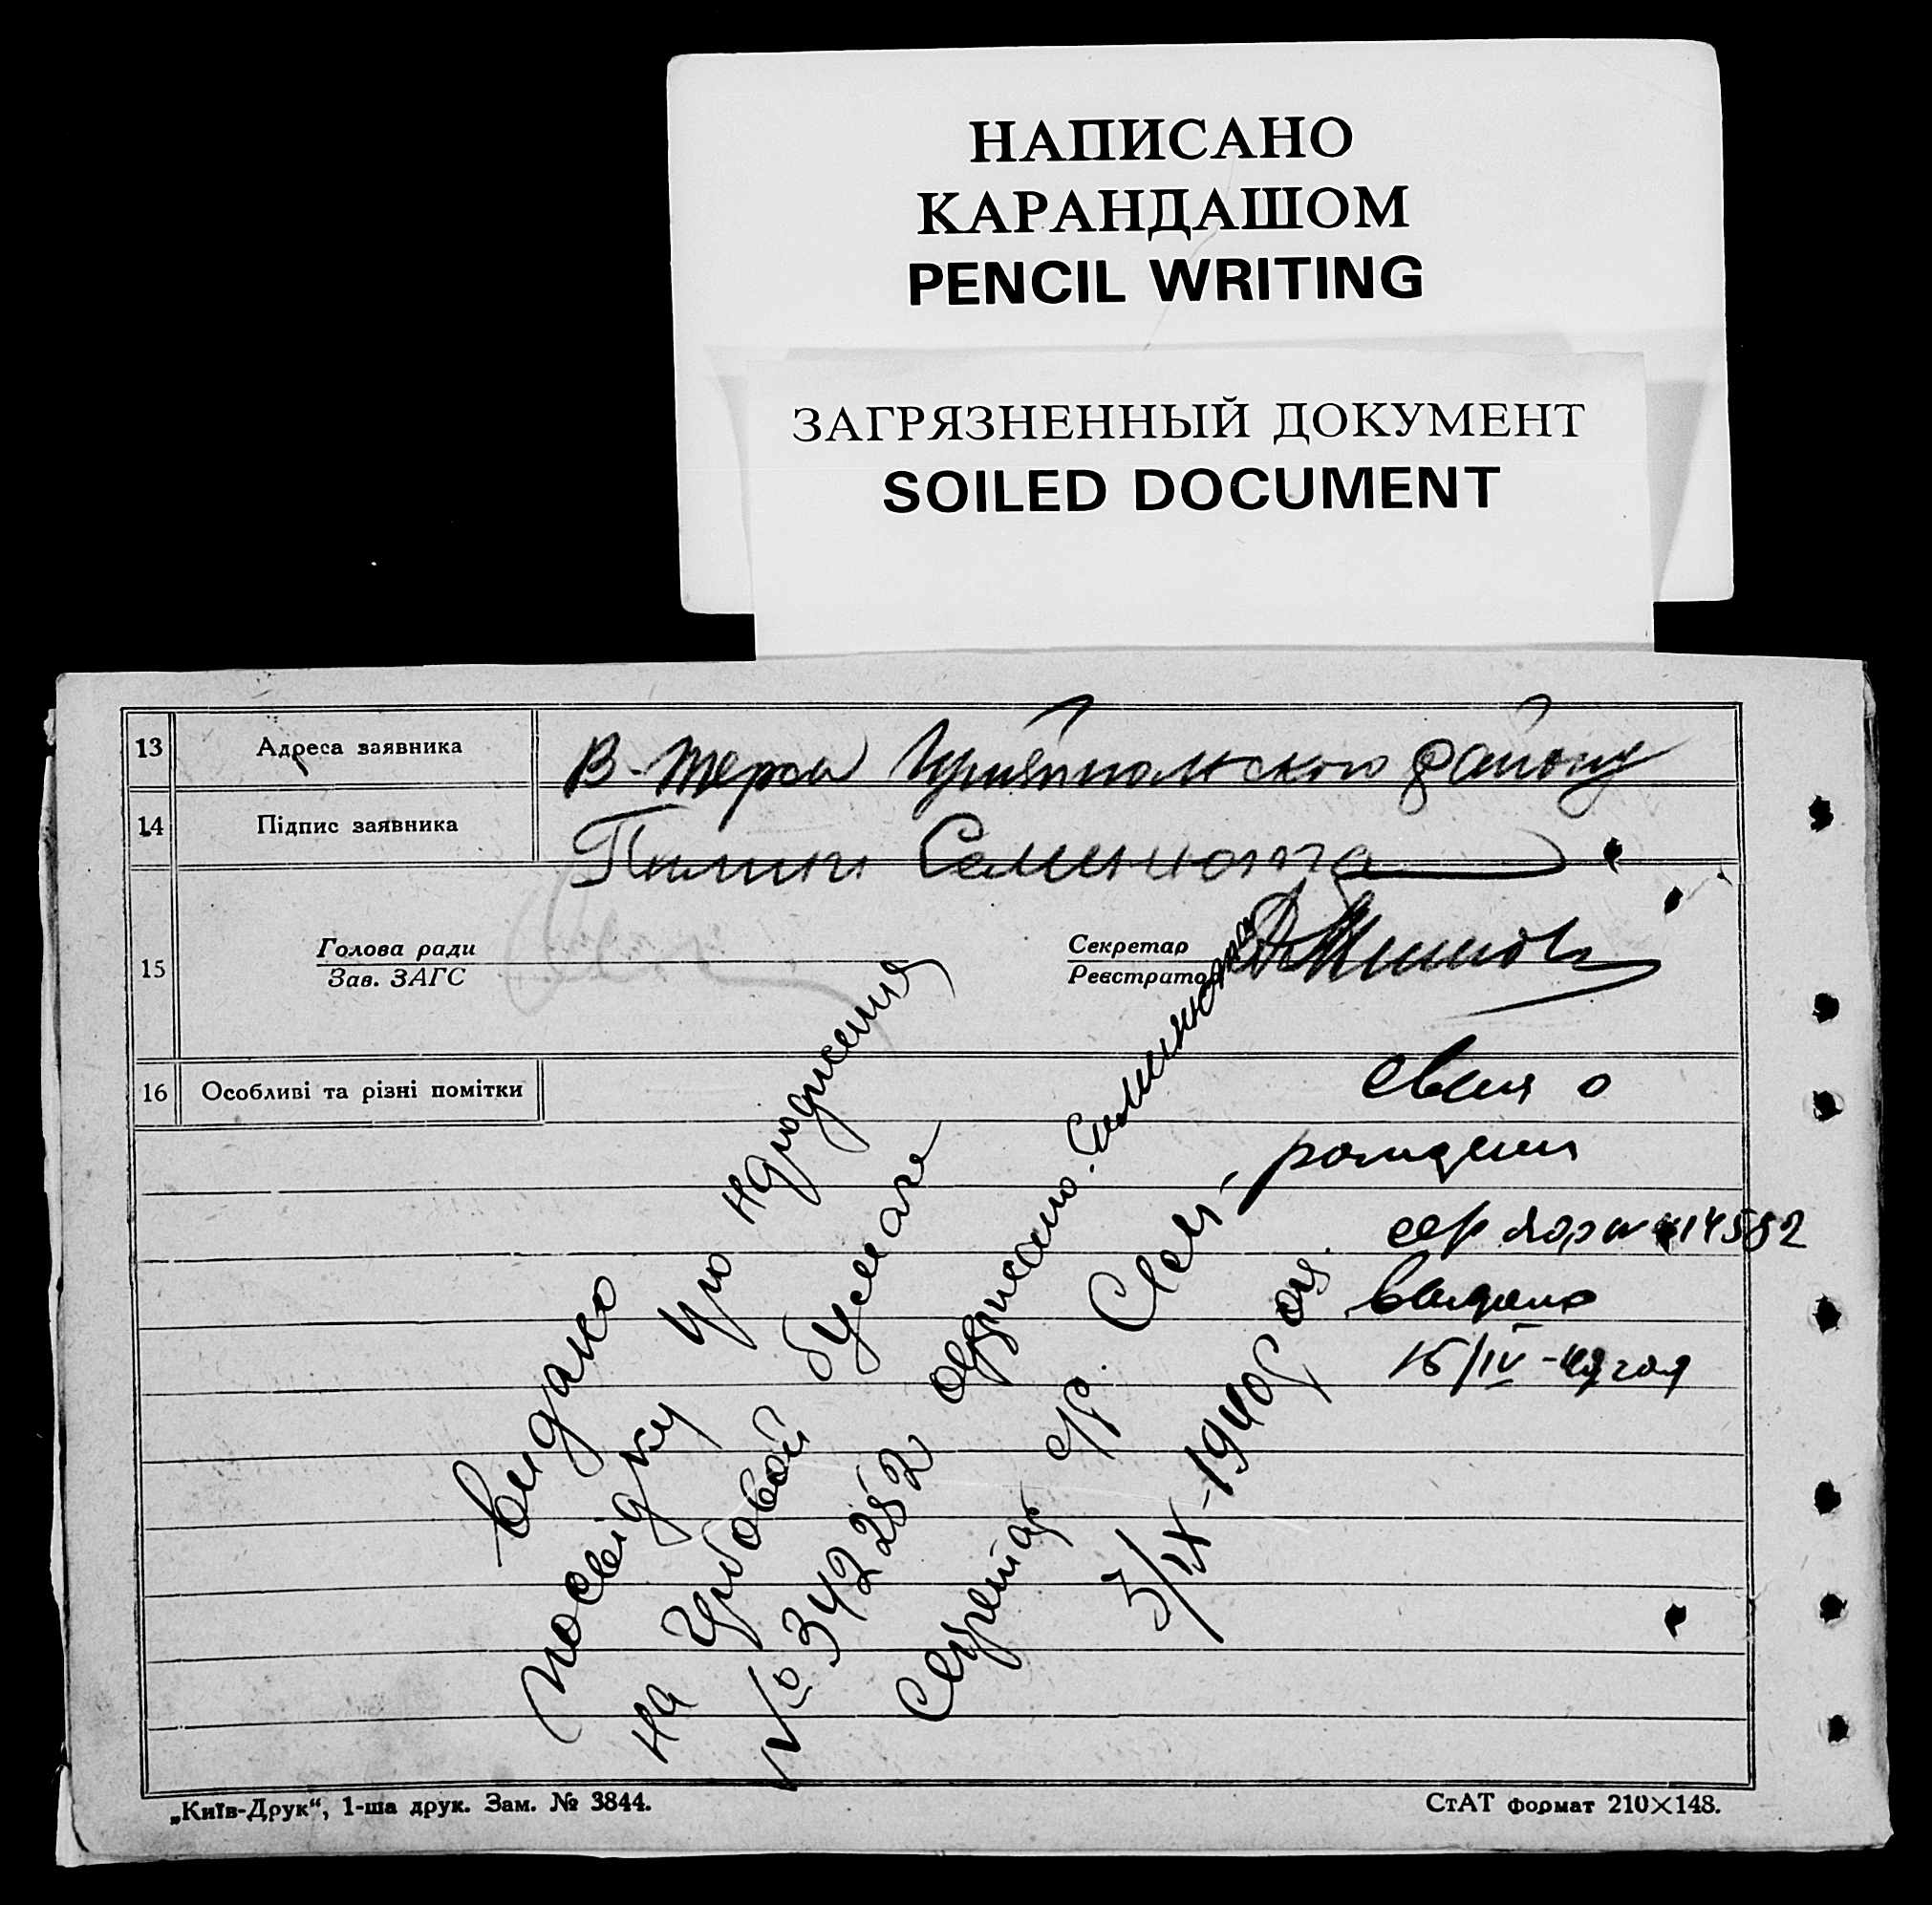 НАПИСАНО
КАРАНДАШОМ
PENCIL WRITING
ЗАГРЯЗНЕННЫЙ ДОКУМЕНТ
SOILED DOCUMENT
13 Адреса заявника В-Терса району
14 Підпис заявника
15 Голова ради Секретар
Зав. ЗАГС Реєстратор
16 Особливі та різні помітки
видано
посвідку про народження
на гербовой бумаге
№ 342252
Секретар с/р.
св о
рождении
сер 14582
выдано
15/IV-49 год
„Київ-Друк“, 1-ша друк. Зам. № 3844. СтАТ формат 210×148.